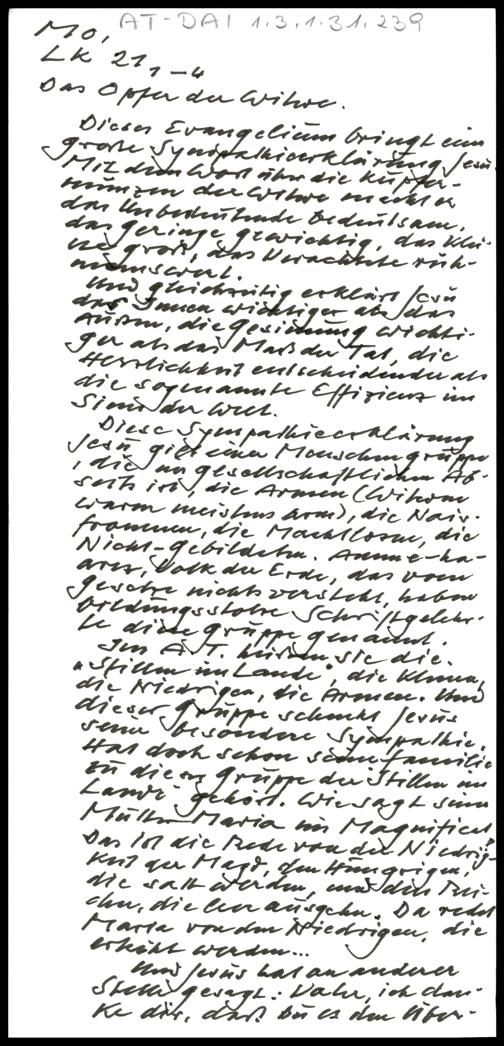 AT-DAI 1.3.1.31.239
Mo,
LK 21, 1-4
Das Opfer der Witwe.
Dieses Evangelium bringt eine
große Sympathieerklärung Jesu.
Mit dem Wort über die Kupfer-
münzen der Witwe macht er
das Unbedeutende bedeutsam,
das geringe gewichtig, das Klei-
ne groß, das Verachtete rüh-
menswert.
Und gleichzeitig erklärt Jesu
das Innen wichtiger als das
Außen, die gesinnung wichti-
ger als das Maß der Tat, die
Herzlichkeit entscheidender als
die sogenannte Effizienz im
Sinn der Welt.
Diese Sympathieerklärung
Jesu gilt einer Menschengruppe
, die im gesellschaftlichen Ab-
seits ist, die Armen (Witwen
waren meistens arm), die Naiv-
frommen, die Machtlosen, die
Nicht-gebildeten. Amme-ha-
arez, Volk der Erde, das vom
gesetze nichts versteht, haben
bildungsstolze Schriftgelehr-
te diese gruppe genannt.
Im A.T. heissen sie die
"Stillen im Lande", die Kleinen,
die Niedrigen, die Armen. Und
dieser gruppe schenkt Jesus
seine besondere Sympathie.
Hat doch schon seine familie
zu dieser gruppe der Stillen im
Lande gehört. Wie sagt seine
Mutter Maria im Magnificat?
Da ist die Rede von der Niedrig-
keit der Magd, den Hungrigen,
die satt werden, und den Rei-
chen, die leer ausgehen. Da redet
Maria von den Niedrigen, die
erhöht werden...
Und Jesus hat an anderer
Stelle gesagt: Vater, ich dan-
ke dir, daß Du es den Über-